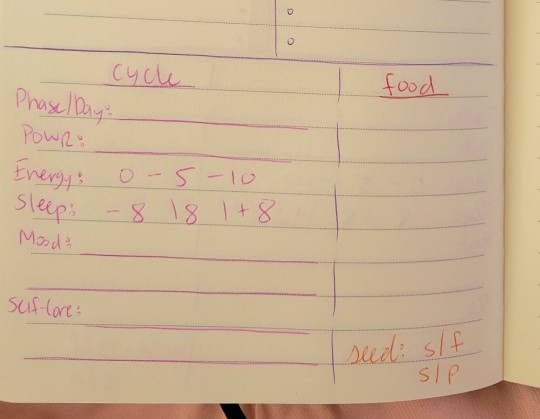 Cycle
food
Phase/Day:
Power:
Energy: 0 - 5 - 10
Sleep: - 8 | 8 | + 8
Mood:
Self-Care:
seed: s/f
s/p